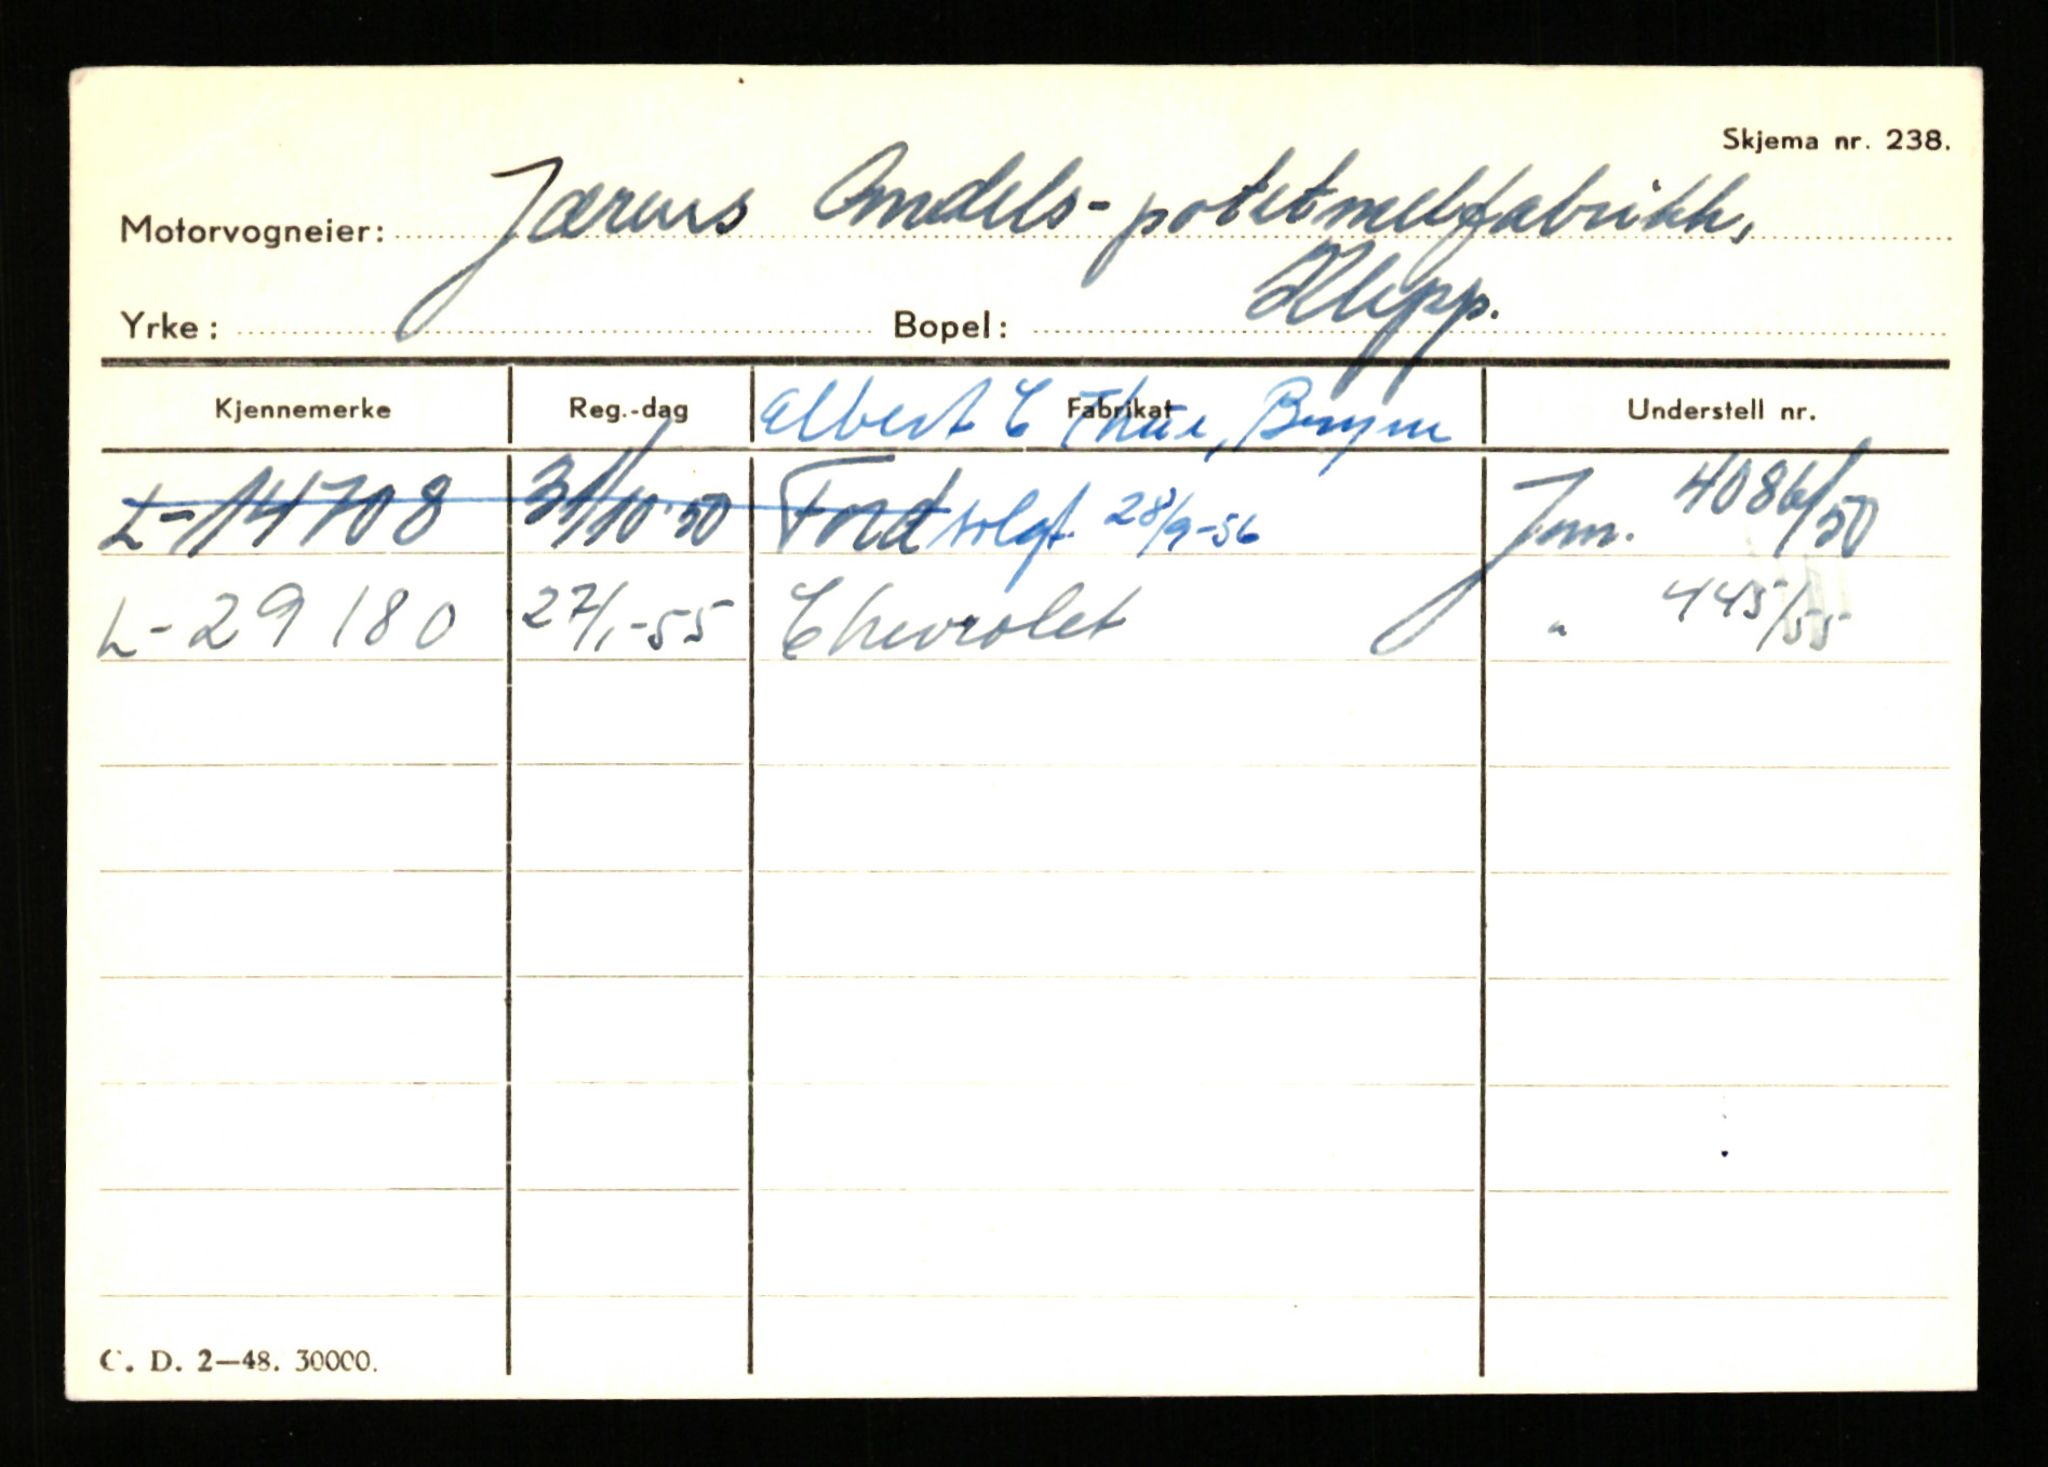 Skjema nr. 238.
Motorvogneier: Jærens Andels-potetmelfabrikk,
Yrke: Bopel: Klepp.
Kjennemerke Reg.-dag Fabrikat Understell nr.
Albert C Thue, Bryne
L-14708 31/10-50 Ford solgt. 28/9-56 Jnn. 4086/50
L-29180 27/1-55 Chevrolet " 445/55
C. D. 2—48. 30000.